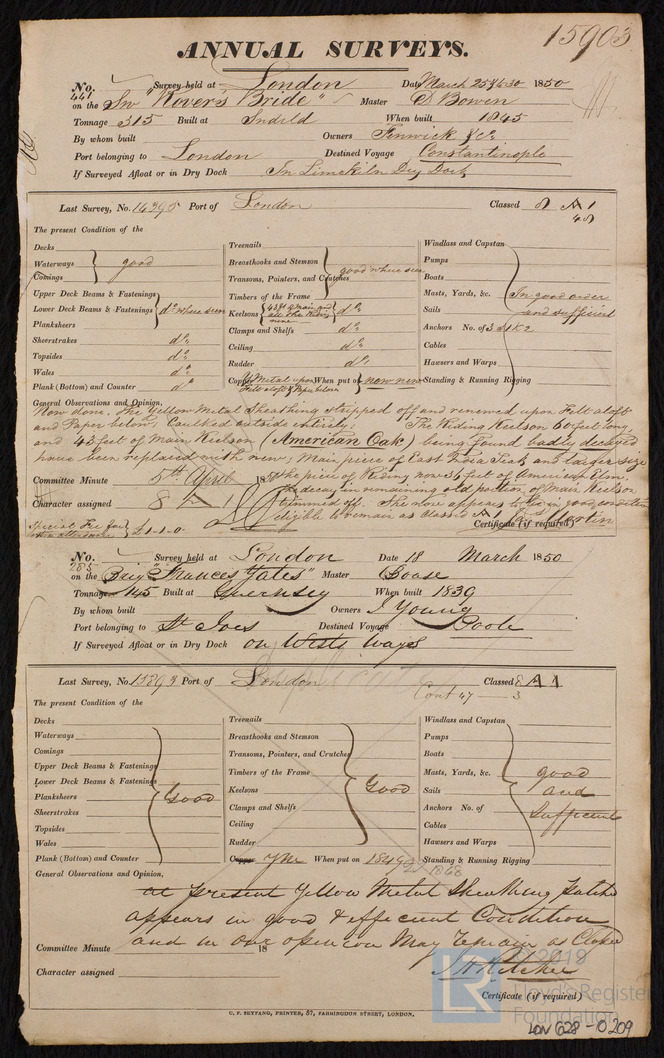 15903
ANNUAL SURVEYS.
No. 441 Survey held at London Date March 25 & 30 1850
on the Sw "Rover's Bride" Master D Bowen
Tonnage 315 Built at Sndrld When built 1845
By whom built Owners Fenwick & Co.
Port belonging to London Destined Voyage Constantinople
If Surveyed Afloat or in Dry Dock In Limekiln Dry Dock
Last Survey, No. 14395 Port of London Classed 8 A 1
48
The present Condition of the
Decks
Waterways good
Comings
Upper Deck Beams & Fastenings
Lower Deck Beams & Fastenings do. where seen
Planksheers
Sheerstrakes do.
Topsides do.
Wales do.
Plank (Bottom) and Counter do.
Treenails
Breasthooks and Stemson good where seen
Transoms, Pointers, and Crutches
Timbers of the Frame
Keelsons 43 ft of Main and all the Riding new do.
Clamps and Shelfs do.
Ceiling do.
Rudder do.
Copper Y Metal upon Felt aloft & Paper below When put on now new
Windlass and Capstan
Pumps
Boats
Masts, Yards, &c. In good order
Sails and sufficient
Anchors No. of 3 & 1 & 2
Cables
Hawsers and Warps
Standing & Running Rigging
General Observations and Opinion,
Now done. The Yellow Metal Sheathing stripped off and renewed upon Felt aloft
and Paper below, Caulked outside entirely. The Riding Keelson 60 feet long,
and 43 feet of Main Keelson (American Oak) being found badly decayed
have been replaced with new; Main piece of East India Teak and larger size
the piece of Riding now 34 feet of American Elm.
Committee Minute 5th April 1850
the decay in remaining old portion of Main Keelson
trimmed off. She now appears to be in good condition
eligible to remain as classed A 1
Character assigned 8 A 1
Special Fee for £1-1-0
Certificate (if required) Martin
No. 285 Survey held at London Date 18 March 1850
on the Brig "Frances Yates" Master Goase
Tonnage 145 Built at Guernsey When built 1839
By whom built Owners J Young
Port belonging to St Ives Destined Voyage Poole
If Surveyed Afloat or in Dry Dock on Wests Ways
Last Survey, No. 15893 Port of London Classed 8 A 1
Cont 47 — 3
The present Condition of the
Decks
Waterways
Comings
Upper Deck Beams & Fastenings
Lower Deck Beams & Fastenings
Planksheers Good
Sheerstrakes
Topsides
Wales
Plank (Bottom) and Counter
Treenails
Breasthooks and Stemson
Transoms, Pointers, and Crutches
Timbers of the Frame
Keelsons Good
Clamps and Shelfs
Ceiling
Rudder
Copper YM When put on 1849
Windlass and Capstan
Pumps
Boats
Masts, Yards, &c. good
Sails and
Anchors No. of Sufficient
Cables
Hawsers and Warps
Standing & Running Rigging
General Observations and Opinion,
at present Yellow Metal Sheathing
appears in good & efficient Condition
and in our opinion May remain as Classed
Committee Minute 18
J H Ritchie
Character assigned
Certificate (if required)
C. F. SEYFANG, PRINTER, 57, FARRINGDON STREET, LONDON.
LR
2018
Lloyd's Register
Foundation
LON 628-0209